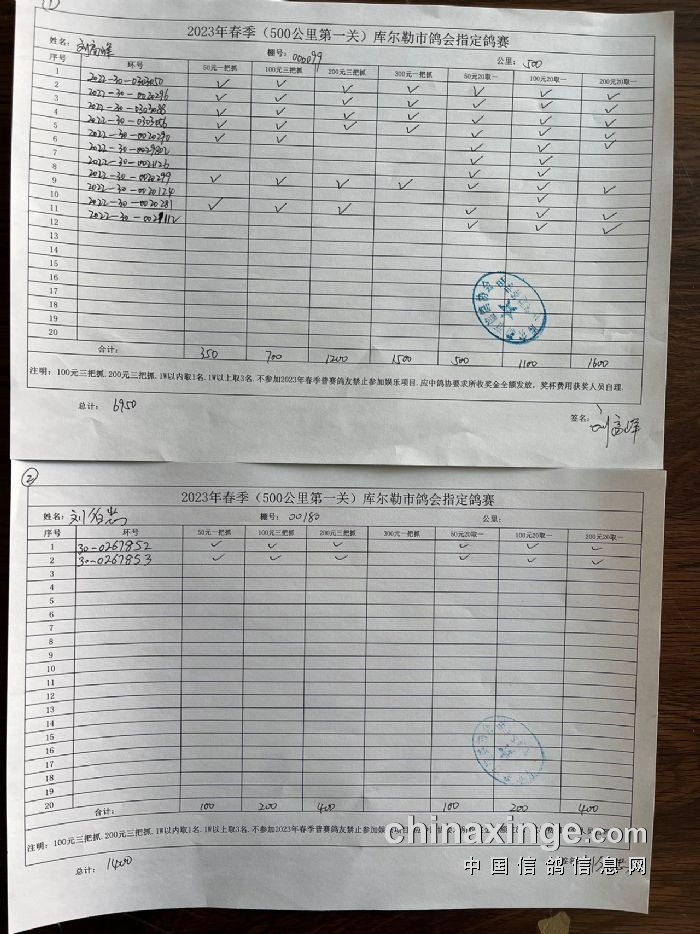 ①
2023年春季（500公里第一关）库尔勒市鸽会指定鸽赛
姓名: 棚号: 000099 公里: 500
序号 环号 50元一把抓 100元三把抓 200元三把抓 300元一把抓 50元20取一 100元20取一 200元20取一
1 2022-30-0303050 ✓ ✓ ✓ ✓ ✓ ✓ ✓
2 2022-30-0020296 ✓ ✓ ✓ ✓ ✓ ✓ ✓
3 ✓ ✓ ✓ ✓ ✓ ✓ ✓
4 2022-30-0303056 ✓ ✓ ✓ ✓ ✓ ✓ ✓
5 2022-30-0020290 ✓ ✓ ✓ ✓ ✓
6 ✓ ✓
7 ✓ ✓
8 2022-30-0020299 ✓ ✓ ✓ ✓ ✓ ✓ ✓
9 2022-30-0020124 ✓
10 2022-30-0020281 ✓ ✓ ✓ ✓ ✓ ✓
11 ✓ ✓ ✓
12
13
14
15
16
17
18
19
20
合计: 350 700 1200 1500 500 1100 1600
注明: 100元三把抓. 200元三把抓. 1W以内取1名. 1W以上取3名. 不参加2023年春季普赛鸽友禁止参加娱乐项目. 应中鸽协要求所收奖金全额发放，奖杯费用获奖人员自理.
总计: 6950
签名:
②
2023年春季（500公里第一关）库尔勒市鸽会指定鸽赛
姓名: 棚号: 00180 公里:
序号 环号 50元一把抓 100元三把抓 200元三把抓 300元一把抓 50元20取一 100元20取一 200元20取一
1 30-0267852 ✓ ✓ ✓ ✓ ✓ ✓
2 30-0267853 ✓ ✓ ✓ ✓ ✓ ✓
3
4
5
6
7
8
9
10
11
12
13
14
15
16
17
18
19
20
合计: 100 200 400 100 200 400
注明: 100元三把抓. 200元三把抓. 1W以内取1名. 1W以上取3名. 不参加2023年春季普赛鸽友禁止参加娱
总计: 1400
chinaxinge.com
中国信鸽信息网